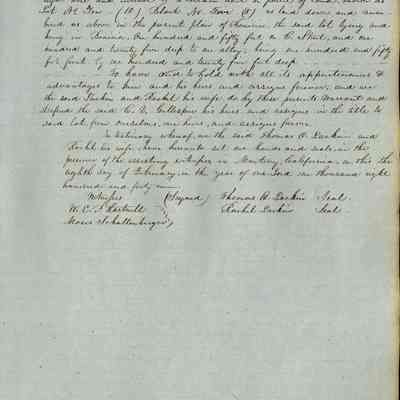 Lot No Two (2) Block No Four (4) as laid down and num
bered as above in the present plan of Benicia, the said lot lying and
being in Benicia, One hundred and fifty feet on the Street, and one
hundred and twenty five deep to an alley, being one hundred and fifty
feet front by one hundred and twenty five feet deep
To have and to hold with all its appurtenances &
advantages to him and his heirs and assigns forever, and we
the said Larkin and Rachel his wife do by these presents warrant and
defend the said C. V. Gillespie his heirs and assigns in the title to
said lot from ourselves, our heirs, and assigns forever.
In testimony whereof, we the said Thomas O. Larkin and
Rachel his wife, have hereunto set our hands and seals, in the
presence of the subscribing witnesses in Monterey, California, on this the
eighth day of February, in the year of our Lord one thousand eight
hundred and forty nine
Witnesses (Signed) Thomas O. Larkin Seal
W. E. P. Hartnell Rachel Larkin Seal
Moses Schallenberger